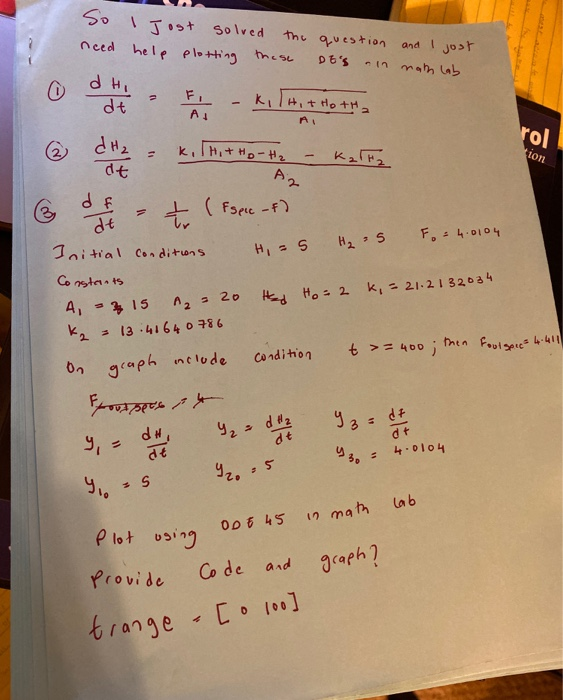 So I Just solved the question and I just
need help plotting these DE's in math lab
① dH₁/dt = F₁/A₁ - K₁√(H₁ + H₀ + H₂)/A₁
② dH₂/dt = K₁√(H₁ + H₀ - H₂) - K₂√H₂ / A₂
③ dF/dt = 1/tᵣ (Fspec - F)
Initial Conditions H₁ = 5 H₂ = 5 F₀ = 4.0104
Constants
A₁ = 15 A₂ = 20 H₀ = 2 K₁ = 21.2132034
K₂ = 13.41640786
On graph include condition t >= 400 ; then Foulspec = 4.411
y₁ = dH₁/dt y₂ = dH₂/dt y₃ = df/dt
y₁₀ = 5 y₂₀ = 5 y₃₀ = 4.0104
Plot using ODE45 in math lab
Provide Code and graph?
trange = [0 100]
rol
tion